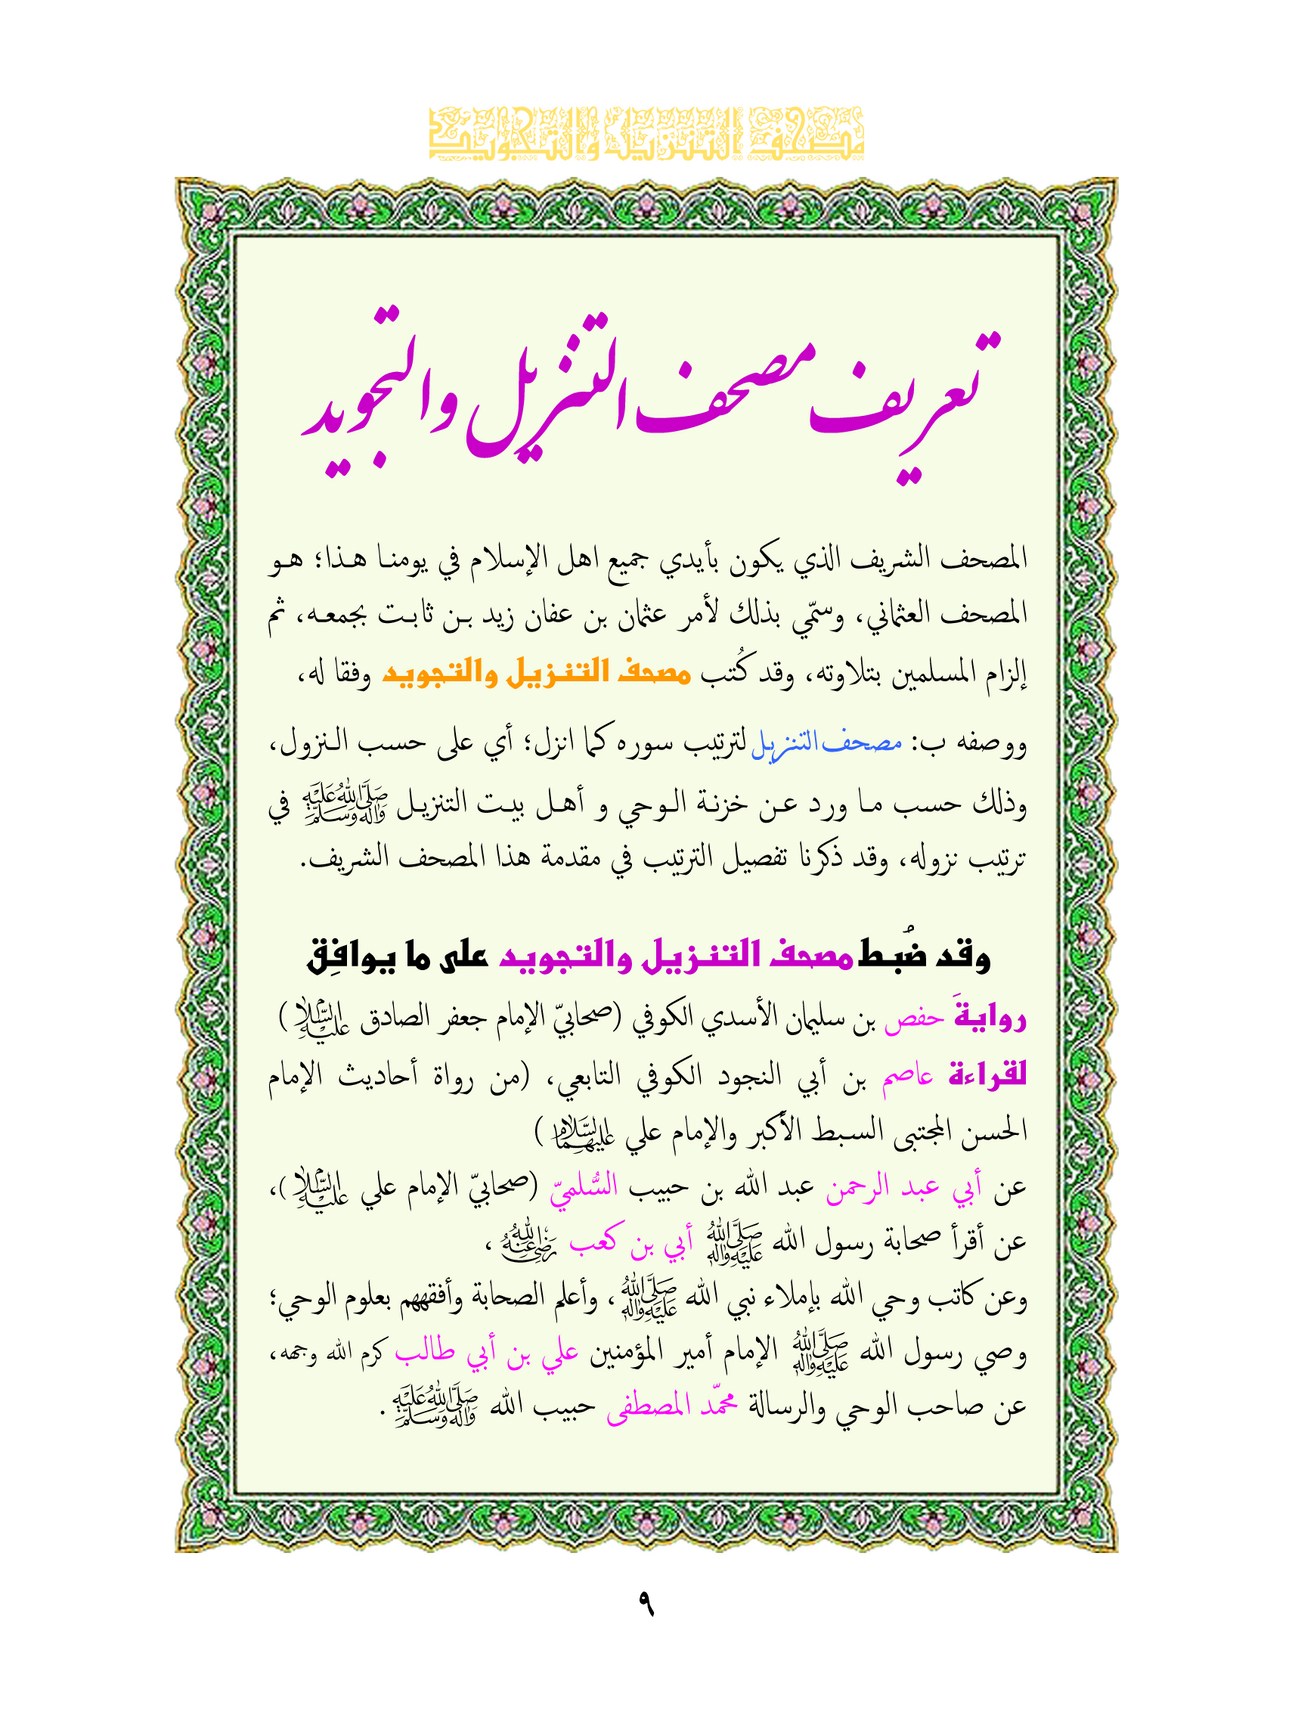 مصحف التنزيل والتجويد
تعريف مصحف التنزيل والتجويد
المصحف الشريف الذي يكون بأيدي جميع اهل الإسلام في يومنا هذا؛ هو
المصحف العثماني، وسمّي بذلك لأمر عثمان بن عفان زيد بن ثابت بجمعه، ثم
إلزام المسلمين بتلاوته، وقد كُتب مصحف التنزيل والتجويد وفقا له،
ووصفه ب: مصحف التنزيل لترتيب سوره كما انزل؛ أي على حسب النزول،
وذلك حسب ما ورد عن خزنة الوحي و أهل بيت التنزيل صَلَّى اللهُ عَلَيْهِ وَآلِهِ وَسَلَّمَ في
ترتيب نزوله، وقد ذكرنا تفصيل الترتيب في مقدمة هذا المصحف الشريف.
وقد ضُبط مصحف التنزيل والتجويد على ما يوافِق
روايةَ حفص بن سليمان الأسدي الكوفي (صحابيّ الإمام جعفر الصادق عَلَيْهِ السَّلَام)
لقراءة عاصم بن أبي النجود الكوفي التابعي، (من رواة أحاديث الإمام
الحسن المجتبى السبط الأكبر والإمام علي عَلَيْهِمَا السَّلَام)
عن أبي عبد الرحمن عبد الله بن حبيب السُّلميّ (صحابيّ الإمام علي عَلَيْهِ السَّلَام)،
عن أقرأ صحابة رسول الله صَلَّى اللهُ عَلَيْهِ وَآلِهِ أبي بن كعب رَضِيَ اللهُ عَنْهُ،
وعن كاتب وحي الله بإملاء نبي الله صَلَّى اللهُ عَلَيْهِ وَآلِهِ، وأعلم الصحابة وأفقههم بعلوم الوحي؛
وصي رسول الله صَلَّى اللهُ عَلَيْهِ وَآلِهِ الإمام أمير المؤمنين علي بن أبي طالب كرم الله وجهه،
عن صاحب الوحي والرسالة محمّد المصطفى حبيب الله صَلَّى اللهُ عَلَيْهِ وَآلِهِ وَسَلَّمَ.
٩